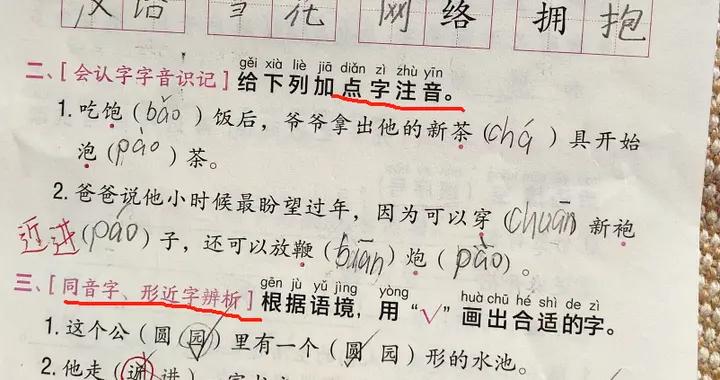 汉语 雪花 网络 拥抱
gěi xià liè jiā diǎn zì zhù yīn
二、[会认字字音识记] 给下列加点字注音。
1. 吃饱（bǎo）饭后，爷爷拿出他的新茶（chá）具开始
泡（pào）茶。
2. 爸爸说他小时候最盼望过年，因为可以穿（chuān）新袍
近进（páo）子，还可以放鞭（biān）炮（pào）。
gēn jù yǔ jìng yòng huà chū hé shì de zì
三、[同音字、形近字辨析] 根据语境，用“√”画出合适的字。
1. 这个公（圆 园）里有一个（圆 园）形的水池。
2. 他走（近 进）